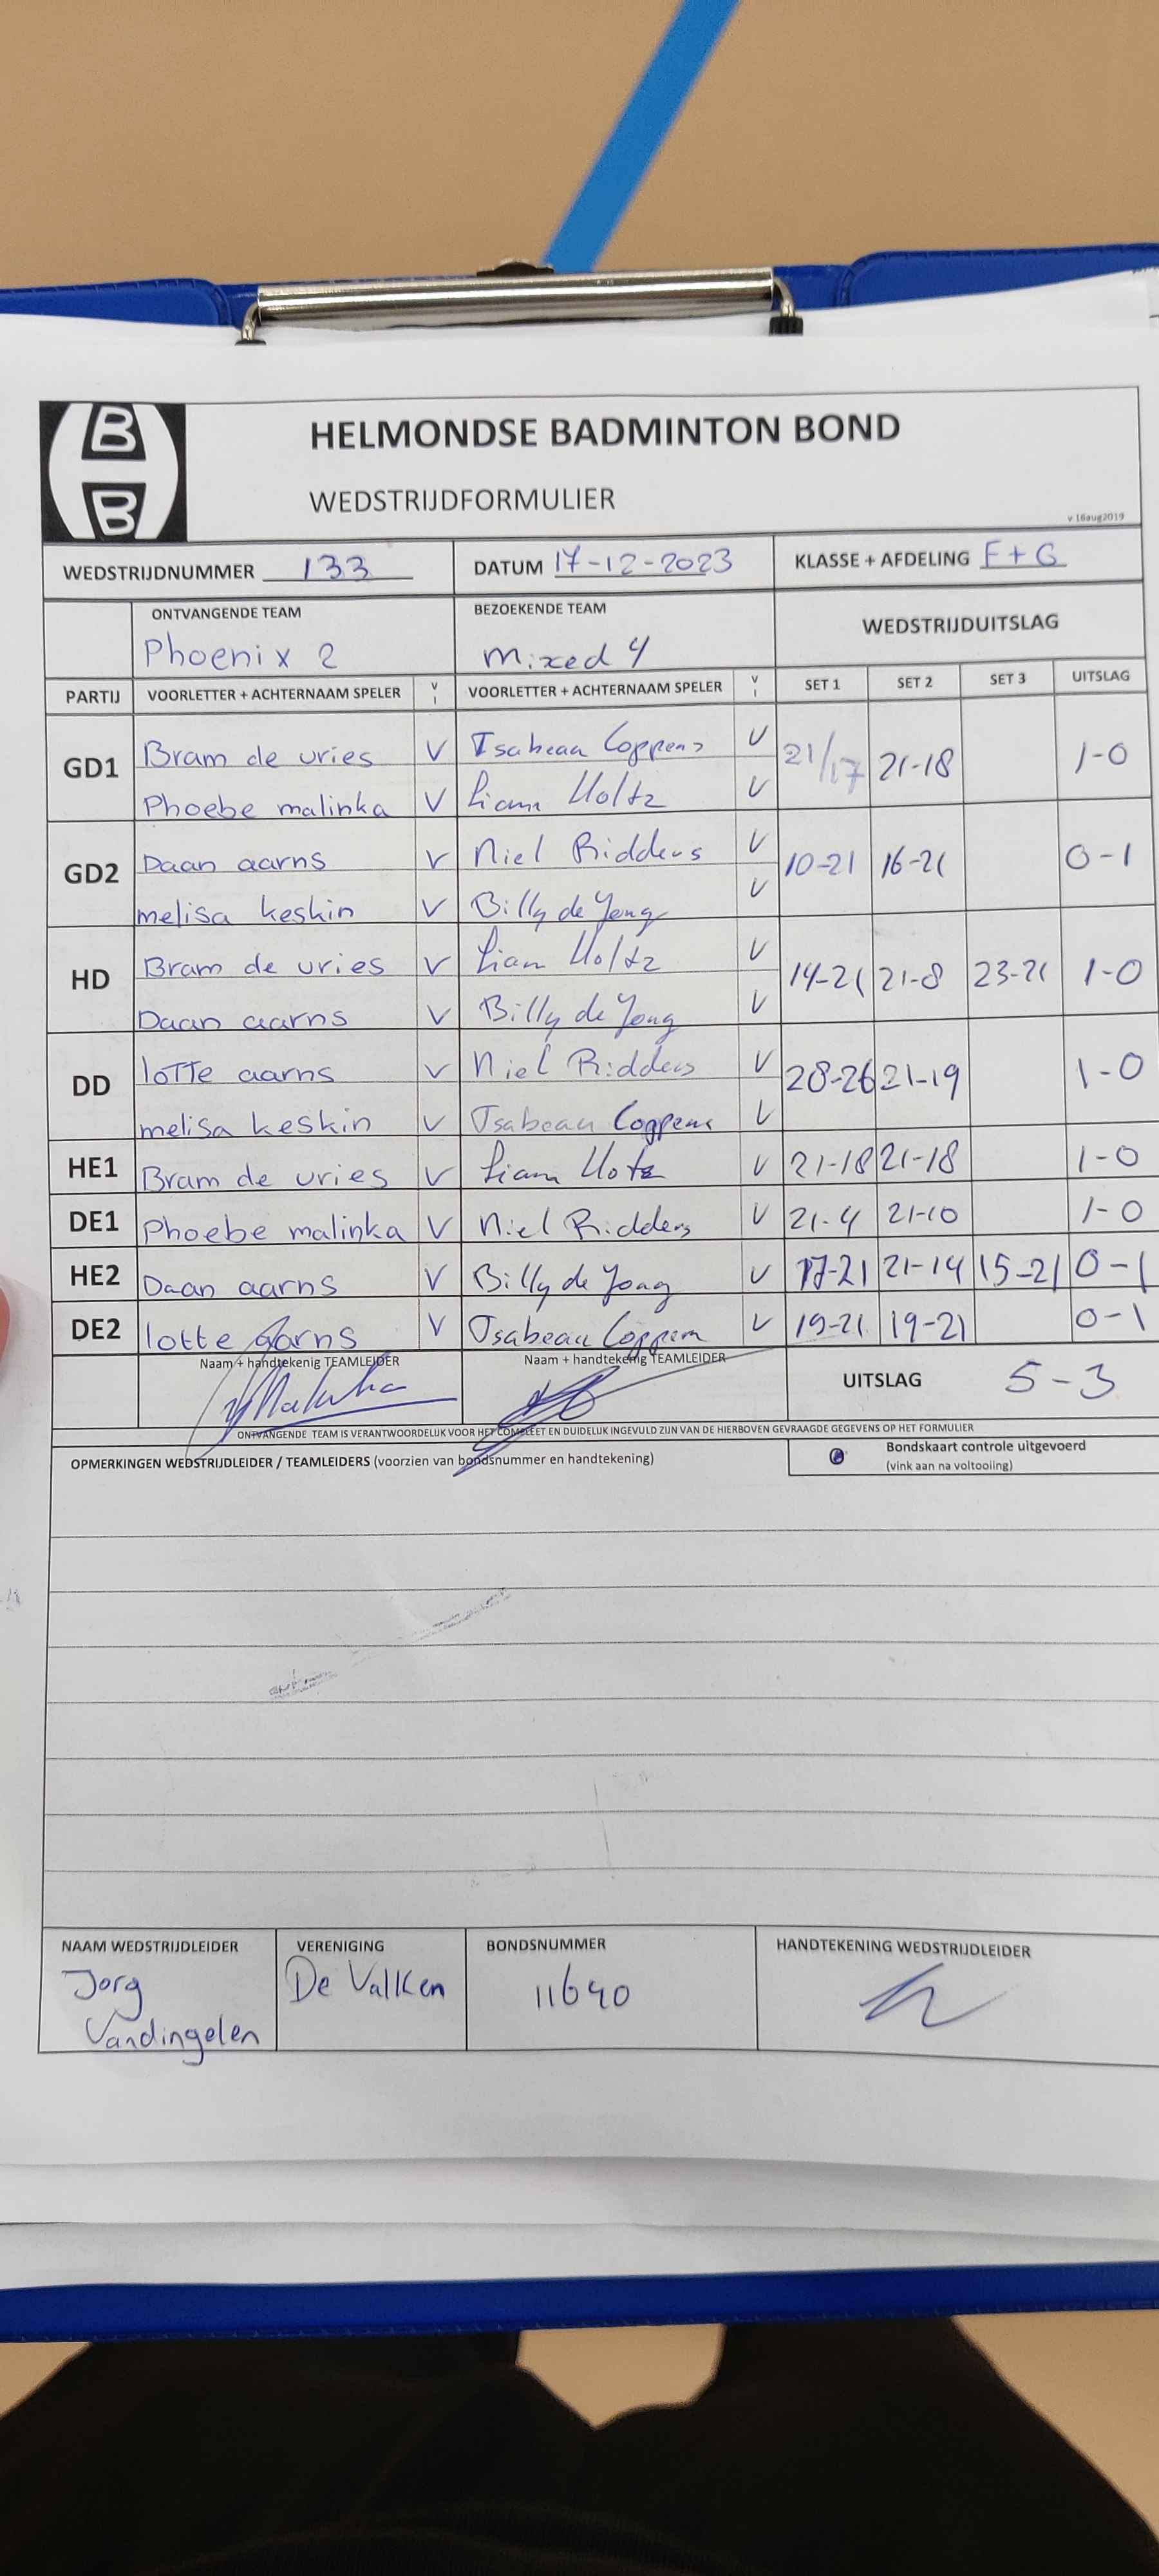 B
B
HELMONDSE BADMINTON BOND
WEDSTRIJDFORMULIER
v 16aug2019
WEDSTRIJDNUMMER 133 DATUM 17-12-2023 KLASSE + AFDELING F+G
ONTVANGENDE TEAM BEZOEKENDE TEAM WEDSTRIJDUITSLAG
Phoenix 2 mixed 4
PARTIJ VOORLETTER + ACHTERNAAM SPELER V I VOORLETTER + ACHTERNAAM SPELER V I SET 1 SET 2 SET 3 UITSLAG
GD1 Bram de vries V Isabeau Coppens V 21/17 21-18 1-0
Phoebe malinka V Liam Holtz V
GD2 Daan aarns V Niel Ridders V 10-21 16-21 0-1
melisa keskin V Billy de Jong V
HD Bram de vries V Liam Holtz V 14-21 21-8 23-21 1-0
Daan aarns V Billy de Jong V
DD lotte aarns V Niel Ridders V 28-26 21-19 1-0
melisa keskin V Isabeau Coppens V
HE1 Bram de vries V Liam Hotz V 21-18 21-18 1-0
DE1 Phoebe malinka V Niel Ridders V 21-4 21-10 1-0
HE2 Daan aarns V Billy de Jong V 17-21 21-14 15-21 0-1
DE2 lotte aarns V Isabeau Coppen V 19-21 19-21 0-1
Naam + handtekenig TEAMLEIDER Naam + handtekenig TEAMLEIDER UITSLAG 5-3
ONTVANGENDE TEAM IS VERANTWOORDELIJK VOOR HET COMPLEET EN DUIDELIJK INGEVULD ZIJN VAN DE HIERBOVEN GEVRAAGDE GEGEVENS OP HET FORMULIER
OPMERKINGEN WEDSTRIJDLEIDER / TEAMLEIDERS (voorzien van bondsnummer en handtekening) Bondskaart controle uitgevoerd
(vink aan na voltooiing)
NAAM WEDSTRIJDLEIDER VERENIGING BONDSNUMMER HANDTEKENING WEDSTRIJDLEIDER
Jorg De Valken 11640
Vandingelen